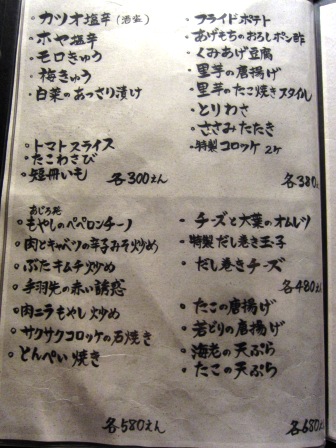 ・カツオ塩辛(酒盗)
・ホヤ塩辛
・モロきゅう
・梅きゅう
・白菜のあっさり漬け
・トマトスライス
・たこわさび
・短冊いも
各300えん
・フライドポテト
・あげもちのおろしポン酢
・くみあげ豆腐
・里芋の唐揚げ
・里芋のたこ焼きスタイル
・とりわさ
・ささみたたき
・特製コロッケ 2ケ
各380え
あじろ苑
・もやしのペペロンチーノ
・肉とキャベツの辛子みそ炒め
・ぶたキムチ炒め
・手羽先の赤い誘惑
・肉ニラもやし炒め
・サクサクコロッケの石焼き
・とんぺい焼き
各580えん
・チーズと大葉のオムレツ
・特製だし巻き玉子
・だし巻きチーズ
各480えん
・たこの唐揚げ
・若どりの唐揚げ
・海老の天ぷら
・たこの天ぷら
各680え